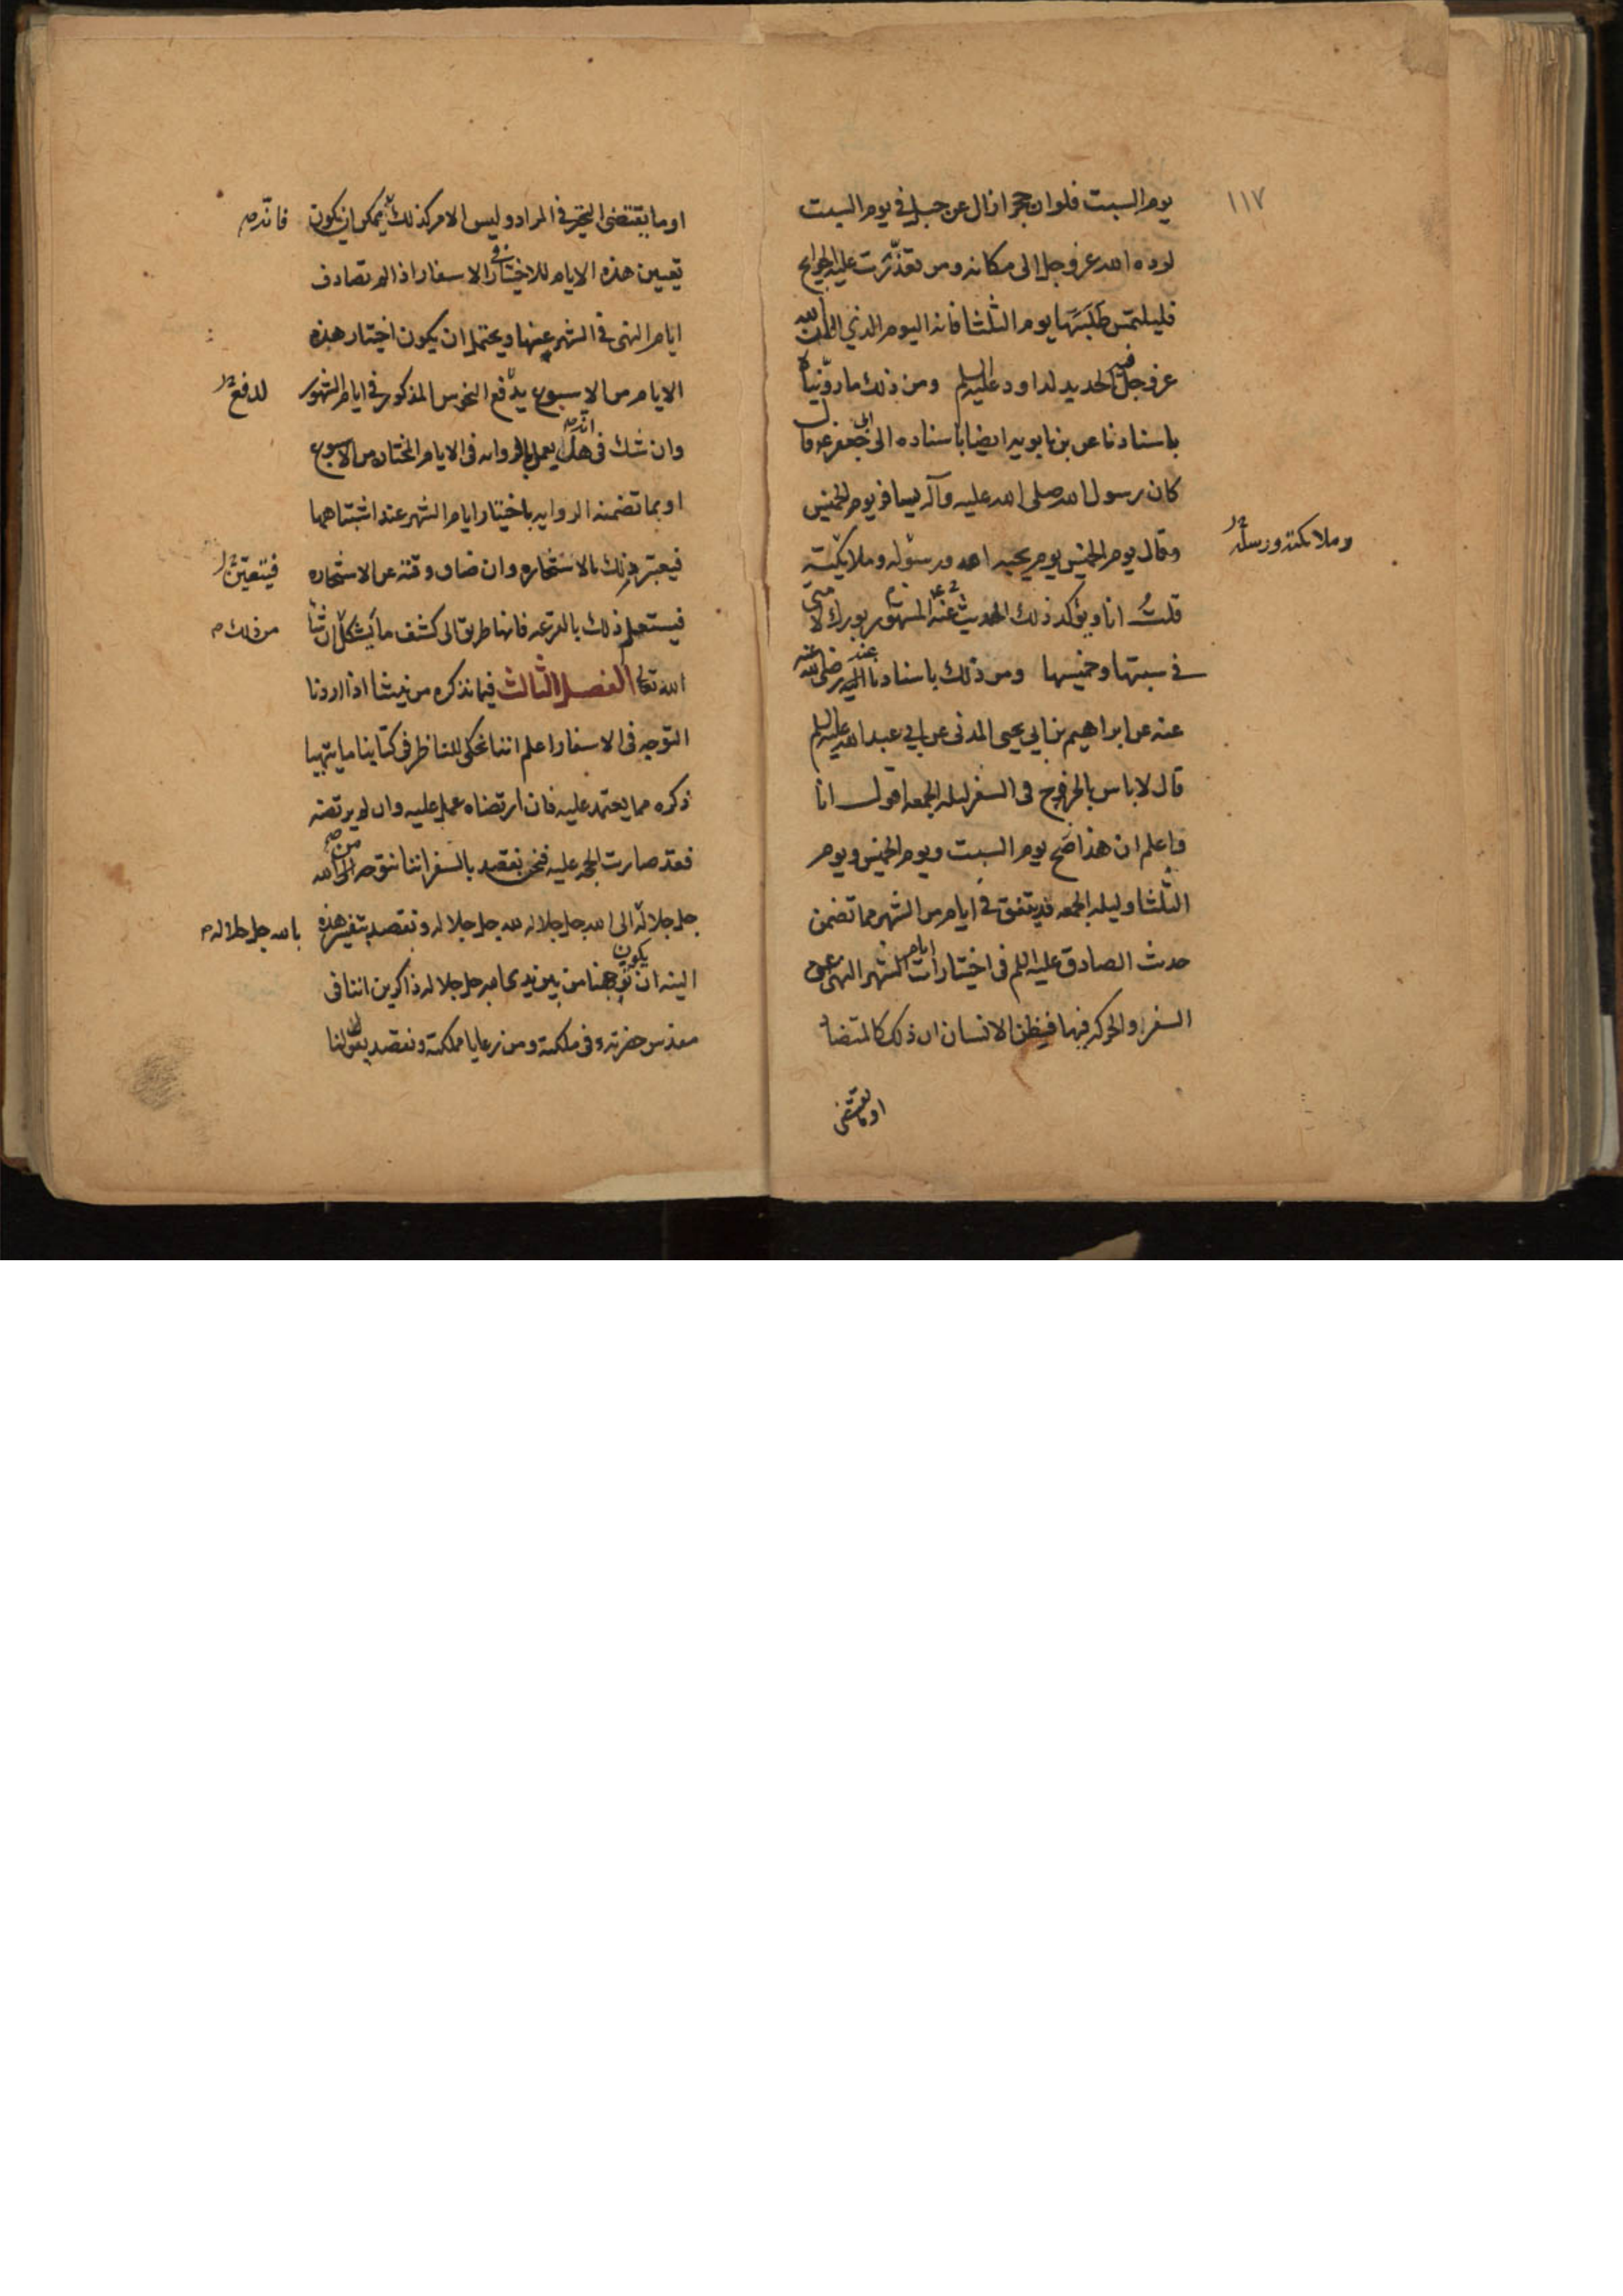 ١١٧
يوم السبت فلوان حجرا زال عن جبل في يوم السبت
لرده الله عز وجل الى مكانه ومن تعذرت عليه الحوايج
فليلتمس طلبتها يوم الثلثا فانه اليوم الذي الان الله
عز وجل فيه الحديد لداود عليه السلم ومن ذلك ما رويناه
باسنادنا عن بن بابويه ايضا باسناده الى ابى جعفر ع قال
كان رسول الله صلى الله عليه وآله يسافر يوم الخميس
وقال يوم الخميس يوم يحبه الله ورسوله وملايكته
وملائكته ورسله
قلت انا ويؤكد ذلك الحديث عنه المشهور بورك لامتى
في سبتها وخميسها ومن ذلك باسنادنا اليه رضى الله عنه
عنه عن ابراهيم بن ابي يحيى المدنى عن ابي عبد الله عليه السلم
قال لا باس بالخروج فى السفر ليله الجمعه اقول انا
واعلم ان هذا صح يوم السبت ويوم الخميس ويوم
الثلثا وليله الجمعه قد يتفق في ايام من الشهر مما تضمن
حدث الصادق عليه السلم فى اختيارات ايام الشهر النهى عن
السفر والحركه فيها فيظن الانسان ان ذلك كالمتضاد
او ما يقتضى
او ما يقتضى التخير في المراد وليس الامر كذلك يمكن ان يكون
فانه
تعيين هذه الايام للاختيار في الاسفار اذا لم تصادف
ايام النهى في الشهر عنها ويحتمل ان يكون اختيار هذه
الايام من الاسبوع يدفع النحوس المذكور في ايام الشهور
لدفع
وان شك فى هل انه يعمل بالروايه فى الايام المختاره من الاسبوع
او بما تضمنه الروايه باختيار ايام الشهر عند اشتباهما
فيعتبر ذلك بالاستخاره وان ضاق وقته عن الاستخاره
فيتعين
فيستعلم ذلك بالقرعه فانها طريق الى كشف ما يشكل ان شا
من ذلك
الله تعالى الفصل الثالث فيما نذكره من نيتنا اذا اردنا
التوجه فى الاسفار اعلم اننا نحكى للناظر فى كتابنا ما يتهيا
ذكره مما يعتمد عليه فان ارتضاه عمل عليه وان لم يرتضه
فقد صارت الحجه عليه فنحن نقصد بالسفر اننا نتوجه من الله
جل جلاله الى الله جل جلاله لله جل جلاله ونقصد بتغير هذه
بالله جل جلاله
النيه ان يكون توجهنا من بين يدى الله جل جلاله ذاكرين اننا فى
مقدس حضرته وفى ملكته ومن رعايا مملكته ونقصد بقولنا